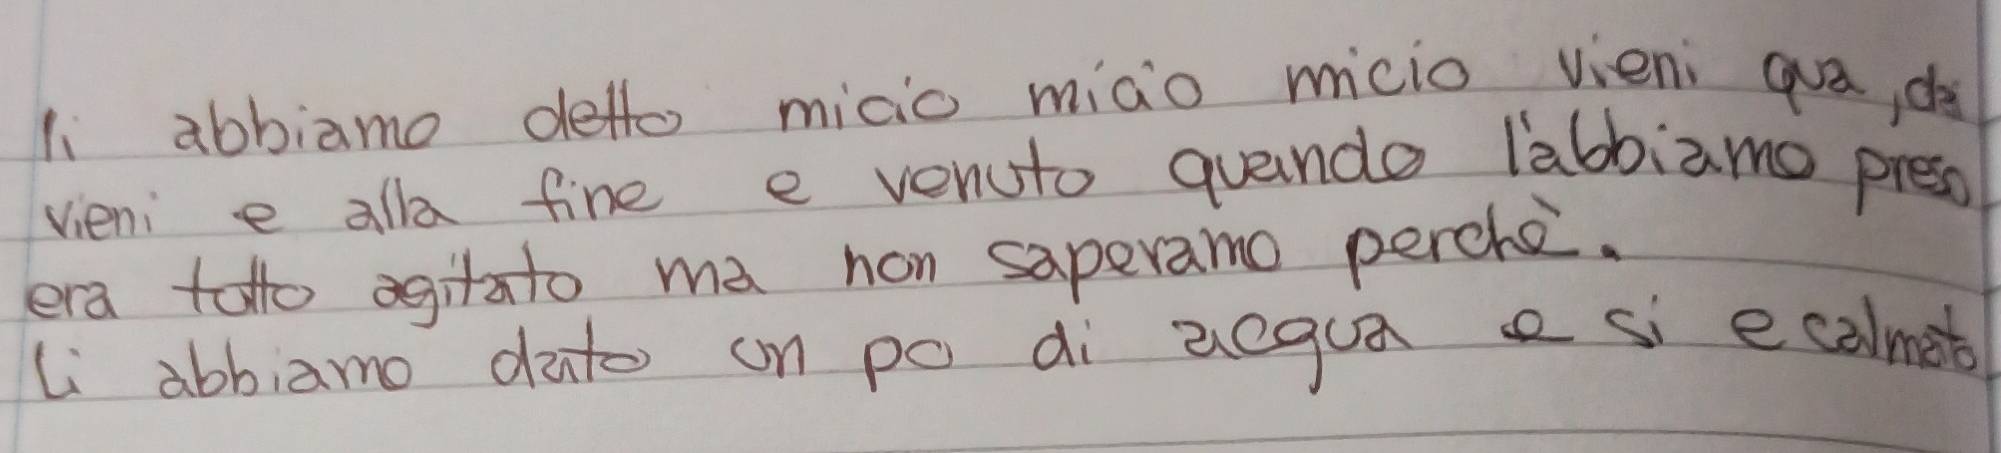 li abbiamo detto micio micio micio vieni qua, da
vieni e alla fine e venuto quando l'abbiamo preso
era tutto agitato ma non sapevamo perchè.
li abbiamo dato un po di acqua e si e calmato